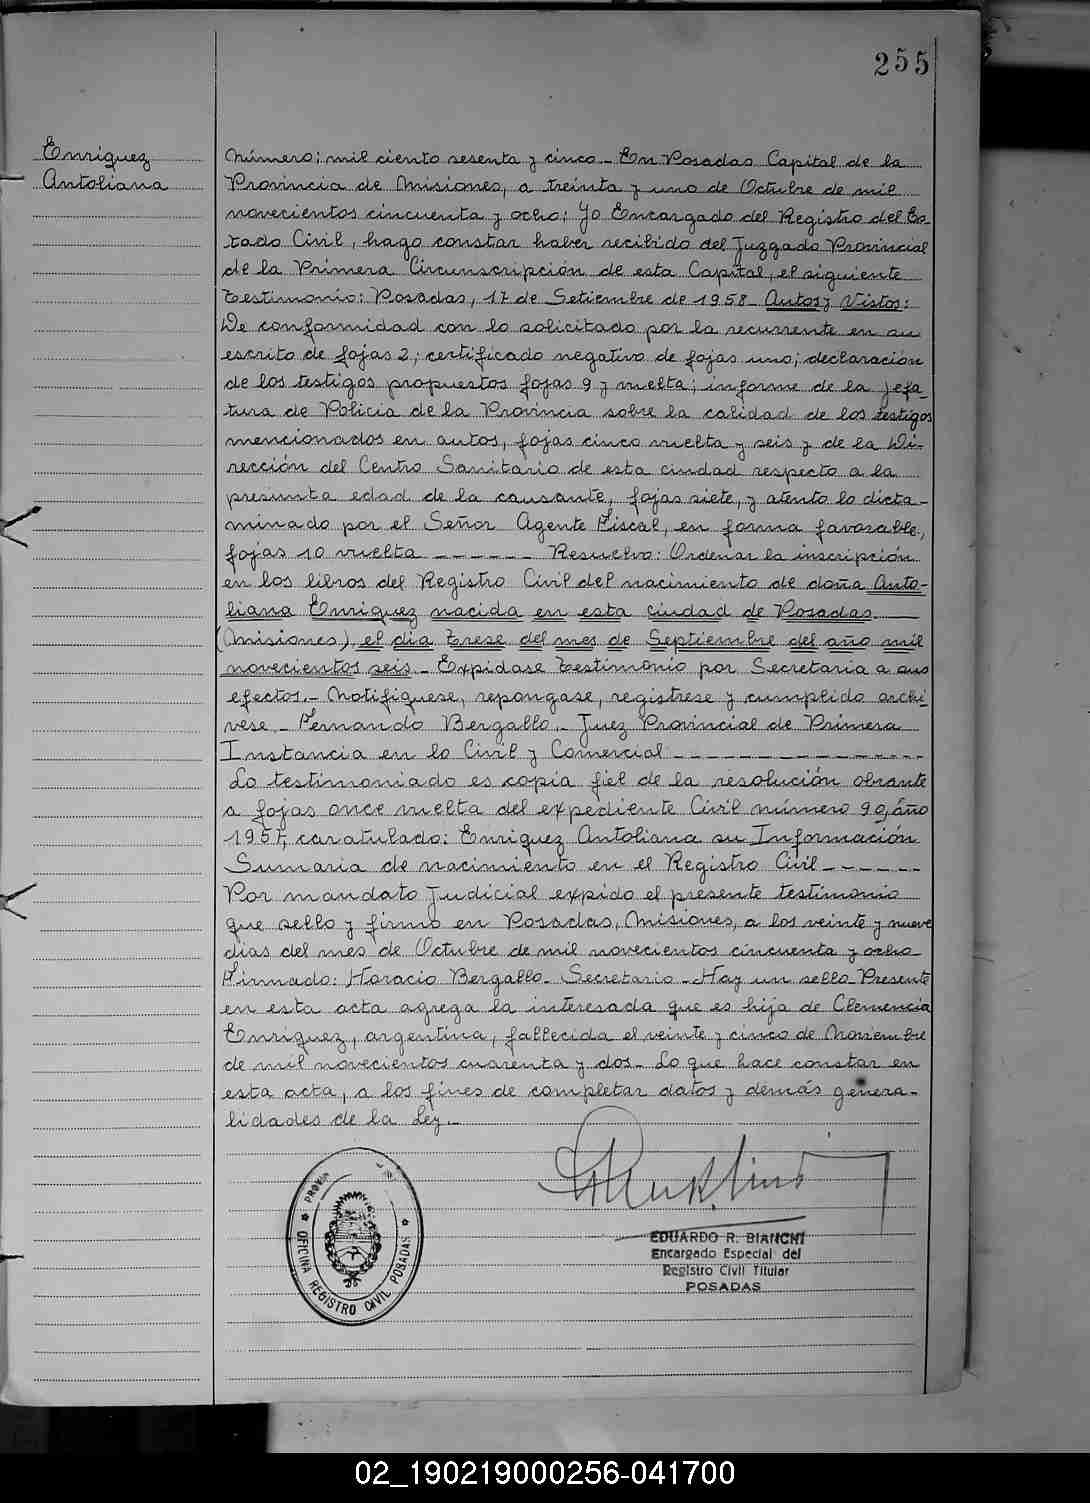 255
Enriquez
Antoliana
Número: mil ciento sesenta y cinco_ En Posadas Capital de la
Provincia de Misiones, a treinta y uno de Octubre de mil
novecientos cincuenta y ocho: Yo Encargado del Registro del Es-
tado Civil, hago constar haber recibido del Juzgado Provincial
de la Primera Circunscripción de esta Capital, el siguiente
testimonio: Posadas, 17 de Setiembre de 1958_ Autos y Vistos:
De conformidad con lo solicitado por la recurrente en su
escrito de fojas 2; certificado negativo de fojas uno; declaración
de los testigos propuestos fojas 9 y vuelta; informe de la Jefa-
tura de Policia de la Provincia sobre la calidad de los testigos
mencionados en autos, fojas cinco vuelta y seis y de la Di-
rección del Centro Sanitario de esta ciudad respecto a la
presunta edad de la causante, fojas siete, y atento lo dicta-
minado por el Señor Agente Fiscal, en forma favorable,
fojas 10 vuelta ______ Resuelvo: Ordenar la inscripción
en los libros del Registro Civil del nacimiento de doña Anto-
liana Enriquez nacida en esta ciudad de Posadas
(Misiones), el dia trese del mes de Septiembre del año mil
novecientos seis._ Expidase testimonio por Secretaria a sus
efectos._ Notifiquese, repongase, registrese y cumplido archi-
vese_ Fernando Bergallo._ Juez Provincial de Primera
Instancia en lo Civil y Comercial ____________
Lo testimoniado es copia fiel de la resolución obrante
a fojas once vuelta del expediente Civil número 90, año
1957, caratulado: Enriquez Antoliana su Información
Sumaria de nacimiento en el Registro Civil ______
Por mandato Judicial expido el presente testimonio
que sello y firmo en Posadas, Misiones, a los veinte y nueve
dias del mes de Octubre de mil novecientos cincuenta y ocho_
Firmado: Horacio Bergallo_ Secretario_ Hay un sello_ Presente
en esta acta agrega la interesada que es hija de Clemencia
Enriquez, argentina, fallecida el veinte y cinco de Noviembre
de mil novecientos cuarenta y dos_ Lo que hace constar en
esta acta, a los fines de completar datos y demás genera-
lidades de la Ley._
OFICINA REGISTRO CIVIL POSADAS
EDUARDO R. BIANCHI
Encargado Especial del
Registro Civil Titular
POSADAS
02_190219000256-041700